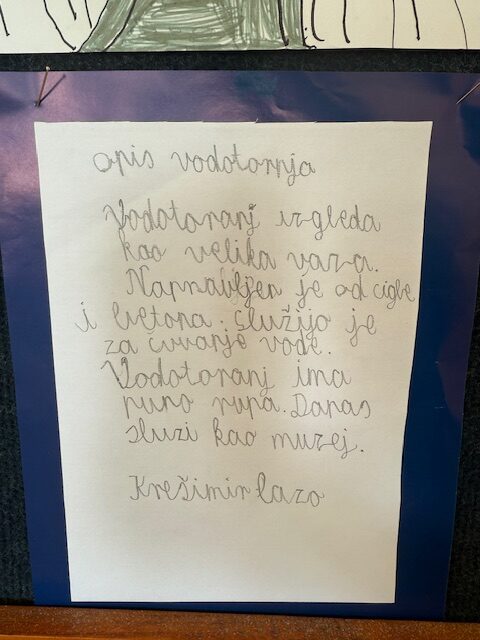 Opis vodotornja
Vodotoranj izgleda
kao velika vaza.
Napravljen je od cigle
i betona. Služijo je
za cuvanje vode.
Vodotoranj ima
puno rupa. Danas
sluzi kao muzej.
Krešimir Lazo